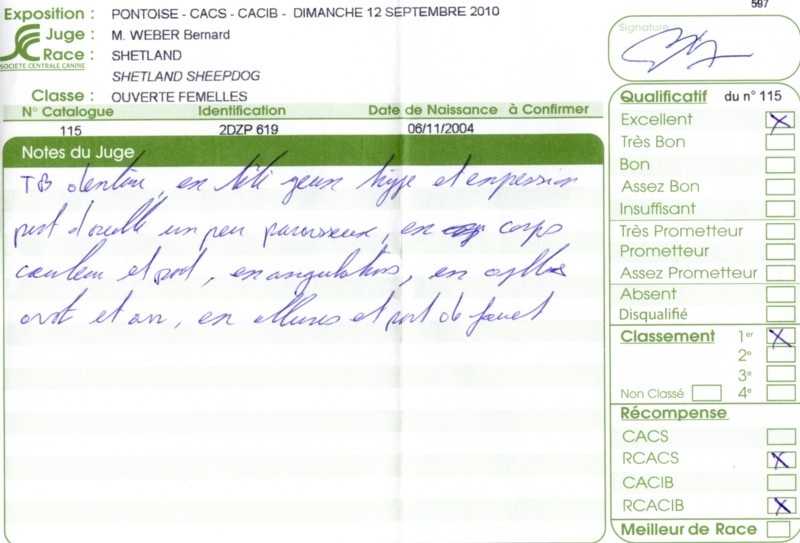 597
Exposition : PONTOISE - CACS - CACIB - DIMANCHE 12 SEPTEMBRE 2010
Juge : M. WEBER Bernard
Race : SHETLAND
SOCIETE CENTRALE CANINE
SHETLAND SHEEPDOG
Classe : OUVERTE FEMELLES
N° Catalogue Identification Date de Naissance à Confirmer
115 2DZP 619 06/11/2004
Notes du Juge
TB dentition, en tête yeux type et expression
port d'oreille un peu paresseux, en corps
couleur et poil, en angulations, en
avt et arr, en allures et port de fouet
Signature
Qualificatif du n° 115
Excellent X
Très Bon
Bon
Assez Bon
Insuffisant
Très Prometteur
Prometteur
Assez Prometteur
Absent
Disqualifié
Classement 1er X
2e
3e
Non Classé 4e
Récompense
CACS
RCACS X
CACIB
RCACIB X
Meilleur de Race